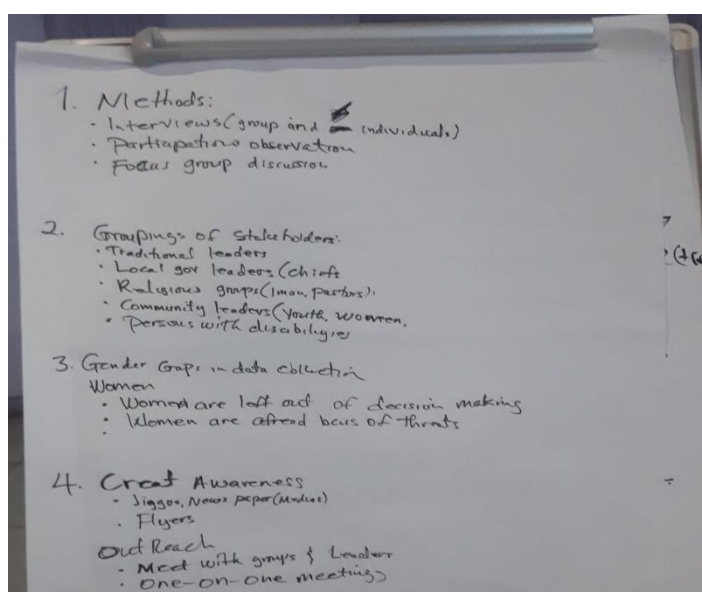 1. Methods:
• Interviews (group and individuals)
• Participations observation
• Focus group discussion
2. Groupings of Stakeholders:
• Traditional leaders
• Local gov leaders (chiefs
• Religious groups (Iman, pastors),
• Community leaders (Youth, women,
• Persons with disabiligies
3. Gender Gaps in data collection
Women
• Women are left out of decision making
• Women are afread bcus of threats
•
4. Creat Awareness
• Jiggos, News peper (Medias)
• Flyers
Out Reach
• Meet with groups & Leaders
• One-on-one meetings